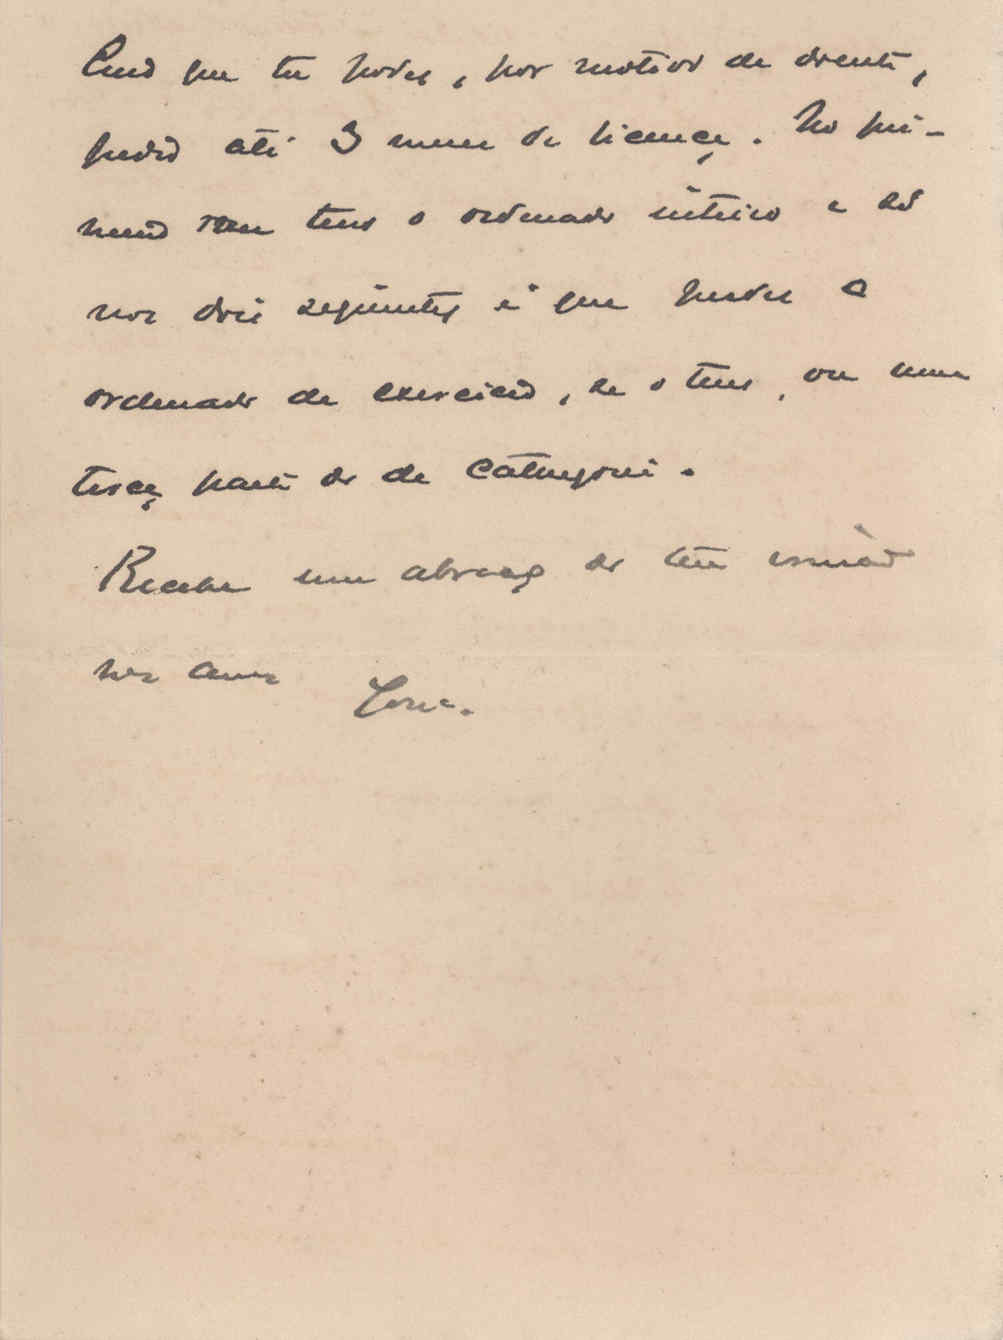 Creio que tu podes, por motivo de doente,
pedir até 3 meses de licença. No pri-
meiro tens o ordenado inteiro e só
nos dois seguintes é que perdes o
ordenado de exercicio, se o tens, ou uma
terça parte do de categoria.
Recebe um abraço do teu irmão